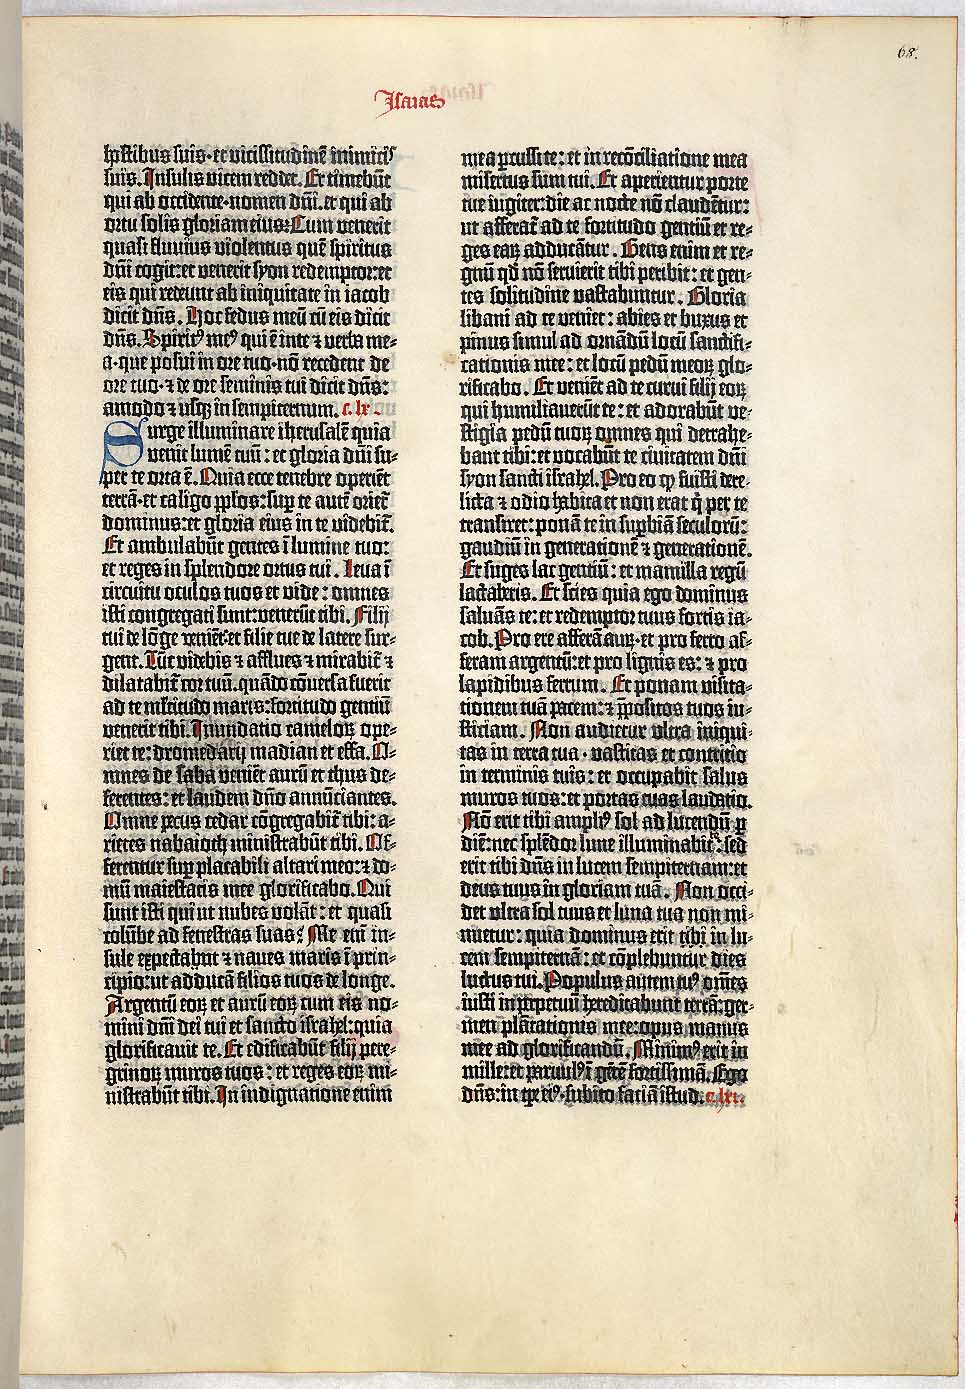 68.
Isaias
hostibus suis·et vicissitudinē inimicis
suis. Insulis vicem reddet. Et timebūt
qui ab occidente·nomen dn̄i·et qui ab
ortu solis gloriam eius: Cum venerit
quasi fluvius violentus quē spiritus
dn̄i cogit: et venerit syon redemptor: et
eis qui redeunt ab iniquitate in iacob
dicit dn̄s. Hoc fedus meū cū eis dicit
dn̄s. Spiritꝰ meꝰ qui ē in te ⁊ verba me-
a·que posui in ore tuo·nō recedent de
ore tuo·⁊ de ore seminis tui dicit dn̄s:
amodo ⁊ usqꝫ in sempiternum. c. lx.
Surge illuminare iherusalē quia
venit lumē tuū: et gloria dn̄i su-
per te orta ē. Quia ecce tenebre operiēt
terrā·et caligo pp̄los: sup̄ te autē orietᷣ
dominus: et gloria eius in te videbitᷣ.
Et ambulabūt gentes ī lumine tuo:
et reges in splendore ortus tui. Leva ī
circuitu oculos tuos et vide: omnes
isti congregati sunt: venerūt tibi. Filij
tui de lōge veniēt: et filie tue de latere sur-
gent. Tūc videbis ⁊ afflues ⁊ mirabitᷣ ⁊
dilatabitᷣ cor tuū·quādo cōversa fuerit
ad te mĺtitudo maris: fortitudo gentiū
venerit tibi. Inundatio camelorꝫ ope-
riet te: dromedarij madian et effa. O-
mnes de saba veniēt aurū et thus de-
ferentes: et laudem dn̄o annūciantes.
Omne pecus cedar cōgregabitᷣ tibi: a-
rietes nabaioth ministrabūt tibi. Of-
ferentur sup̄ placabili altari meo: ⁊ do-
mū maiestatis mee glorificabo. Qui
sunt isti qui ut nubes volāt: et quasi
colūbe ad fenestras suas? Me eni in-
sule expectabūt ⁊ naves maris ī prin-
cipio: ut adducā filios tuos de longe.
Argentū eorꝫ et aurū eorꝫ cum eis no-
mini dn̄i dei tui et sancto israhel: quia
glorificavit te. Et edificabūt filij pere-
grinorꝫ muros tuos: et reges eorꝫ mi-
nistrabūt tibi. In indignatione enim
mea ꝑcussi te: et in recōciliatione mea
misertus sum tui. Et aperientur porte
tue iugiter: die ac nocte nō claudētur:
ut afferatᷣ ad te fortitudo gentiū et re-
ges earꝫ adducātur. Gens enim et re-
gnū qd̄ nō servierit tibi peribit: et gen-
tes solitudine vastabuntur. Gloria
libani ad te veniet: abies et buxus et
pinus simul ad ornādū locū sanctifi-
cationis mee: et locū pedū meorꝫ glo-
rificabo. Et veniēt ad te curvi filij eorꝫ
qui humiliaverūt te: et adorabūt ve-
stigia pedū tuorꝫ omnes qui detrahe-
bant tibi: et vocabūt te civitatem dn̄i
syon sancti israhel. Pro eo ꝙ fuisti dere-
licta ⁊ odio habita et non erat q̇ per te
transiret: ponā te in sup̄biā seculorū:
gaudiū in generationē ⁊ generationē.
Et suges lac gentiū: et mamilla regū
lactaberis. Et scies quia ego dominus
salvās te: et redemptor tuus fortis ia-
cob. Pro ere afferā aurꝫ·et pro ferro af-
feram argentū: et pro lignis es: ⁊ pro
lapidibus ferrum. Et ponam visita-
tionem tuā pacem: ⁊ p̄positos tuos iu-
sticiam. Non audietur ultra iniqui-
tas in terra tua·vastitas et contritio
in terminis tuis: et occupabit salus
muros tuos: et portas tuas laudatio.
Nō erit tibi amplꝰ sol ad lucendū ꝑ
diē: nec splēdor lune illuminabit te: sed
erit tibi dn̄s in lucem sempiternam: et
deus tuus in gloriam tuā. Non occi-
det ultra sol tuus et luna tua non mi-
nuetur: quia dominus erit tibi in lu-
cem sempiternā: et cōplebuntur dies
luctus tui. Populus autem tuꝰ om̄es
iusti in ꝑpetuū hereditabunt terrā: ger-
men plātationis mee: opus manus
mee ad glorificandū. Minimꝰ erit in
mille: et parvulꝰ ī gētē fortissimā. Ego
dn̄s: in tp̄e eiꝰ·subito faciā istud. c. lxi.